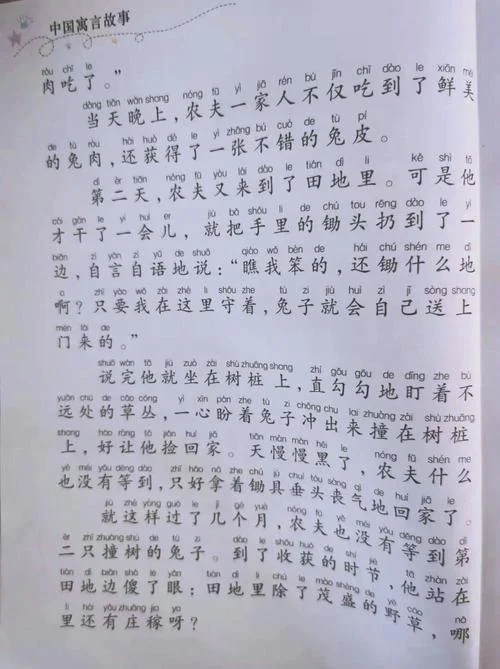 中国寓言故事
ròu chī le
肉吃了。”
dàng tiān wǎn shang nóng fū yì jiā rén bù jǐn chī dào le xiān měi
当天晚上，农夫一家人不仅吃到了鲜美
de tù ròu hái huò dé le yì zhāng bú cuò de tù pí
的兔肉，还获得了一张不错的兔皮。
dì èr tiān nóng fū yòu lái dào le tián dì li kě shì tā
第二天，农夫又来到了田地里。可是他
cái gàn le yí huì er jiù bǎ shǒu li de chú tou rēng dào le yì
才干了一会儿，就把手里的锄头扔到了一
biān zì yán zì yǔ de shuō qiáo wǒ bèn de hái chú shén me dì
边，自言自语地说：“瞧我笨的，还锄什么地
a zhǐ yào wǒ zài zhè li shǒu zhe tù zi jiù huì zì jǐ sòng shàng
啊？只要我在这里守着，兔子就会自己送上
mén lái de
门来的。”
shuō wán tā jiù zuò zài shù zhuāng shang zhí gōu gōu de dīng zhe bù
说完他就坐在树桩上，直勾勾地盯着不
yuǎn chù de cǎo cóng yì xīn pàn zhe tù zi chōng chu lai zhuàng zài shù zhuāng
远处的草丛，一心盼着兔子冲出来撞在树桩
shang hǎo ràng tā jiǎn huí jiā tiān màn màn hēi le nóng fū shén me
上，好让他捡回家。天慢慢黑了，农夫什么
yě méi yǒu děng dào zhǐ hǎo ná zhe chú jù chuí tóu sàng qì de huí jiā le
也没有等到，只好拿着锄具垂头丧气地回家了。
jiù zhè yàng guò le jǐ gè yuè nóng fū yě méi yǒu děng dào dì
就这样过了几个月，农夫也没有等到第
èr zhī zhuàng shù de tù zi dào le shōu huò de shí jié tā zhàn zài
二只撞树的兔子。到了收获的时节，他站在
tián dì biān shǎ le yǎn tián dì li chú le mào shèng de yě cǎo nǎ
田地边傻了眼：田地里除了茂盛的野草，哪
li hái yǒu zhuāng jia ya
里还有庄稼呀？